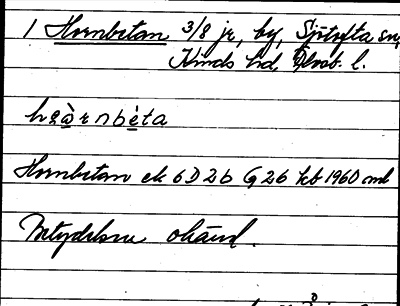 1 Hornbetan 3/8 jr, by, Sjötofta sn,
Kinds hd, Älvsb. l.
ho̧àrnbéta
Hornbetan ek 6D2b G26 kb 1960 md
Betydelsen okänd.